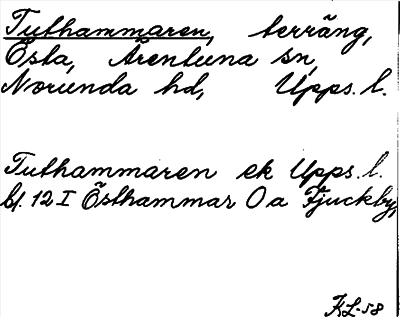 Tuthammaren, terräng,
Ösla, Ärentuna sn,
Norunda hd, Upps. l.
Tuthammaren ek Upps. l.
bl. 12 I Östhammar O a Fjuckby,
KL-58